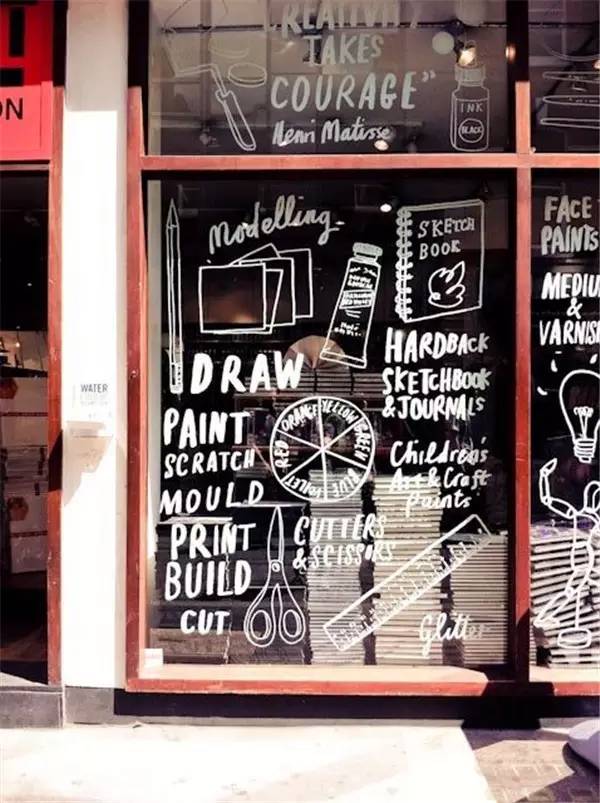 ON
CREATIVITY
TAKES
COURAGE”
Henri Matisse
INK
BLACK
WATER
Modelling
SKETCH
BOOK
DRAW
PAINT
SCRATCH
MOULD
PRINT
BUILD
CUT
RED ORANGE YELLOW GREEN BLUE VIOLET
HARDBACK
SKETCHBOOK
& JOURNALS
Children's
Art & Craft
Paints
CUTTERS
& SCISSORS
Glitter
FACE
PAINTS
MEDIU
&
VARNISH